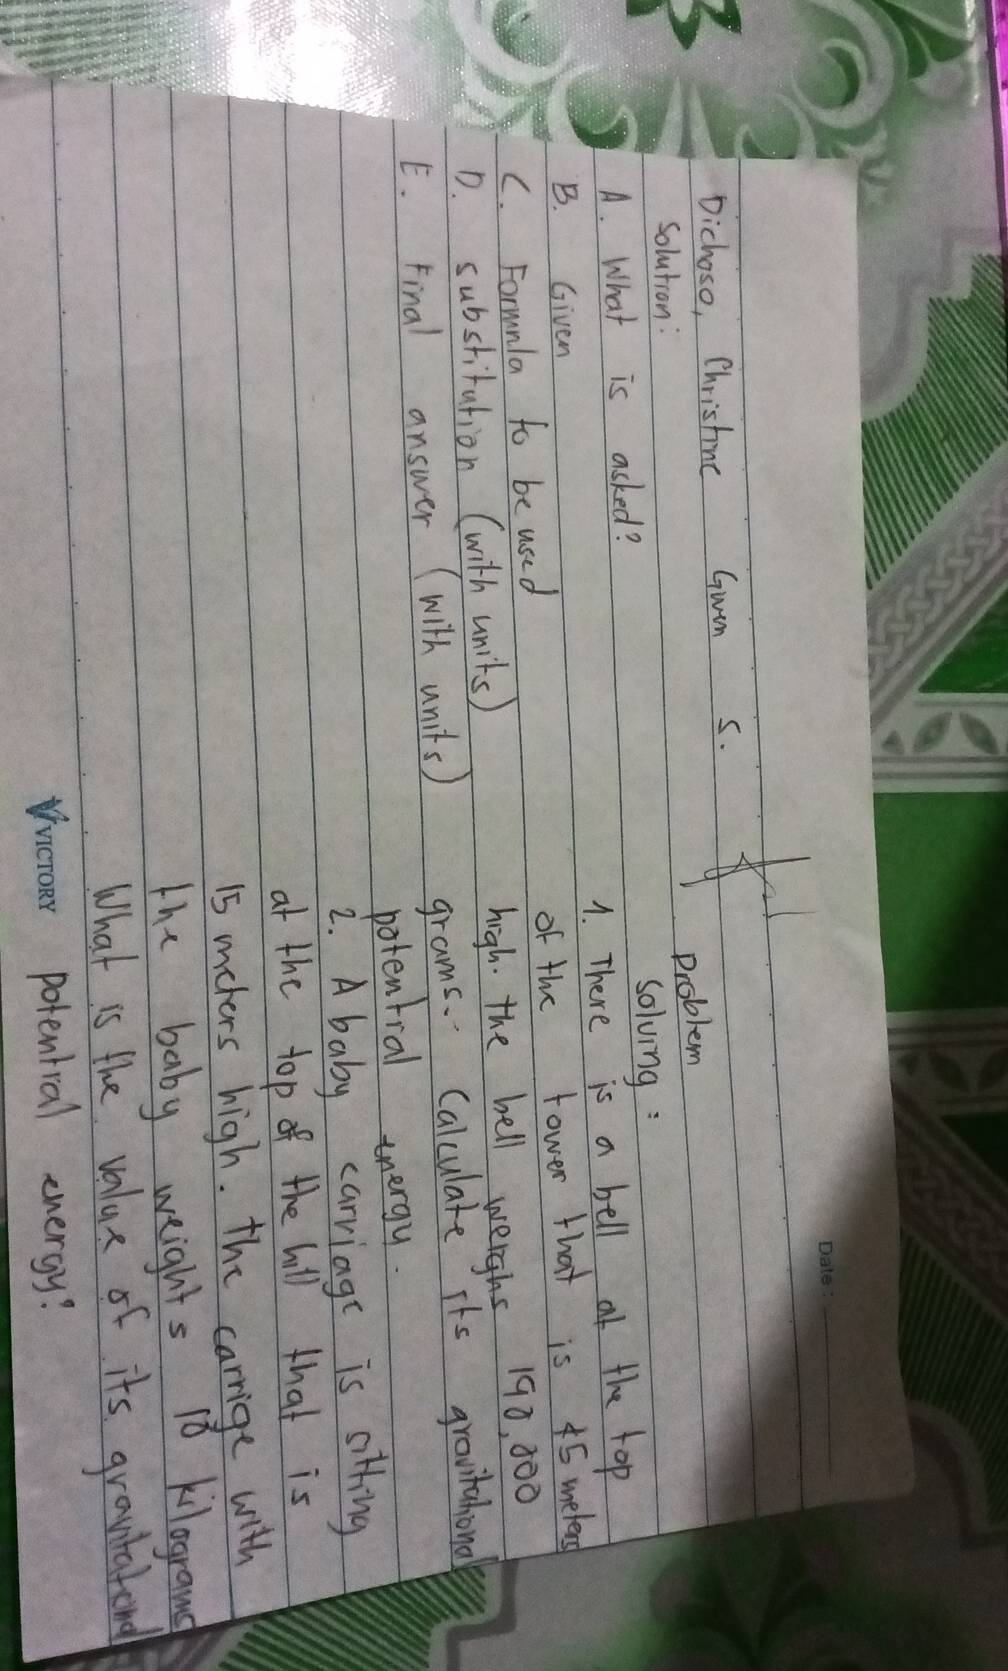 Date:
Dichoso, Christine Gwen S.
Solution:
A. What is asked?
B. Given
C. Formula to be used
D. substitution (with units)
E. Final answer (with units)
problem
solving:
1. There is a bell at the top
of the tower that is 45 meters
high. the bell weighs 190,000
grams. Calculate its gravitational
potential energy.
2. A baby carriage is sitting
at the top of the hill that is
15 meters high. the carrige with
the baby weights 18 kilograms
What is the value of its
potential energy?
VICTORY